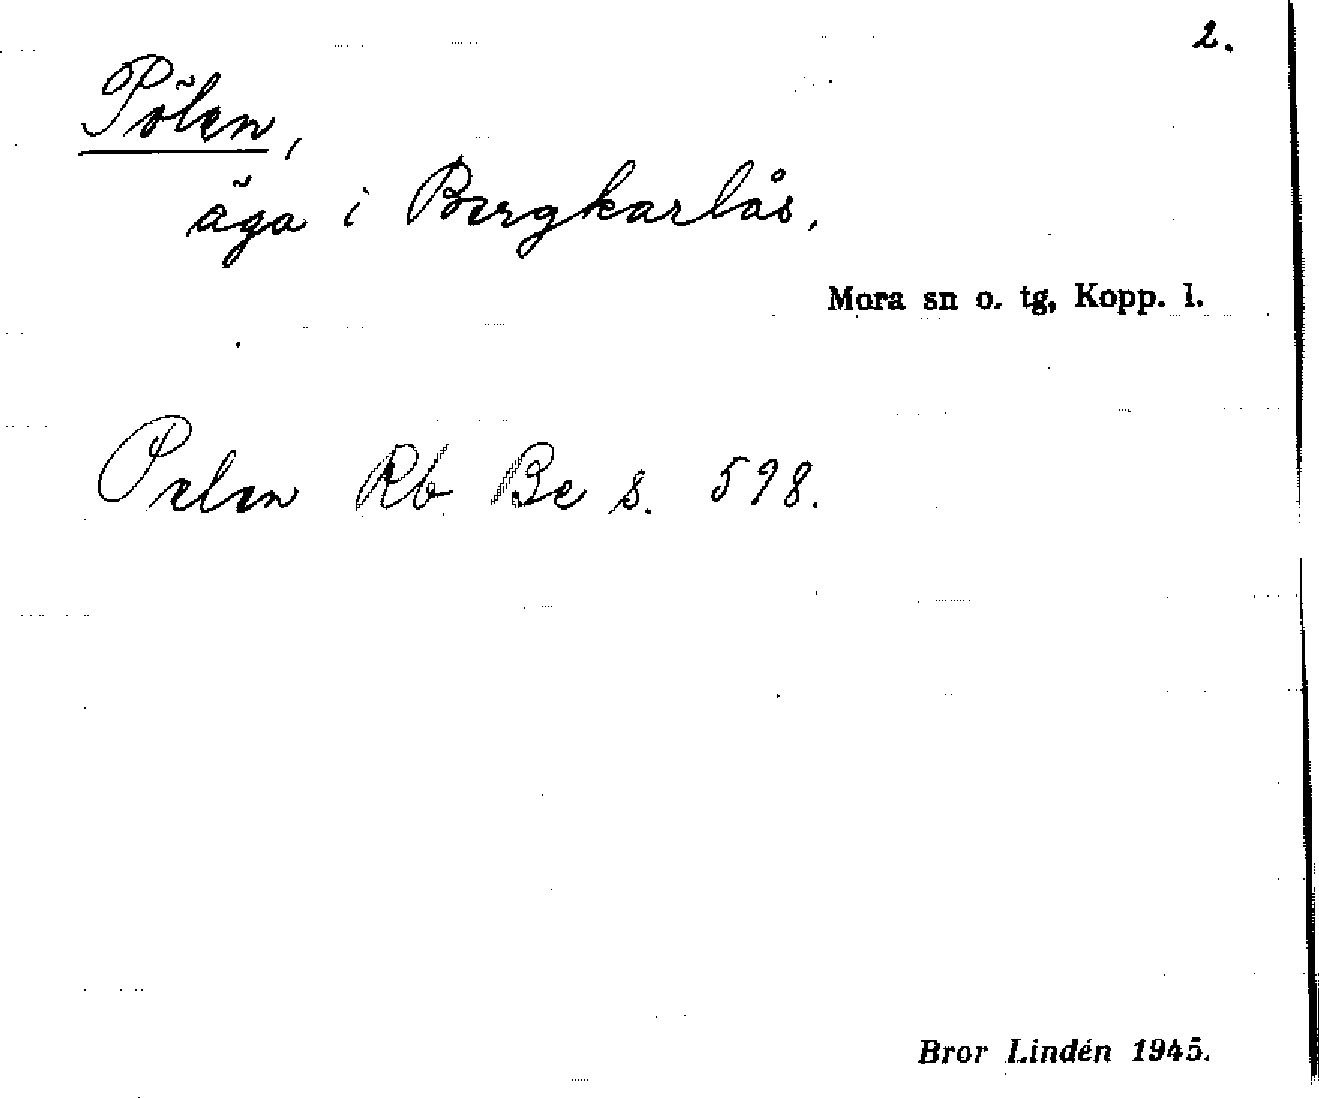 2.
Pölen,
äga i Bergkarlås,
Mora sn o. tg, Kopp. l.
Pelen Rb Be s. 598.
Bror Lindén 1945.